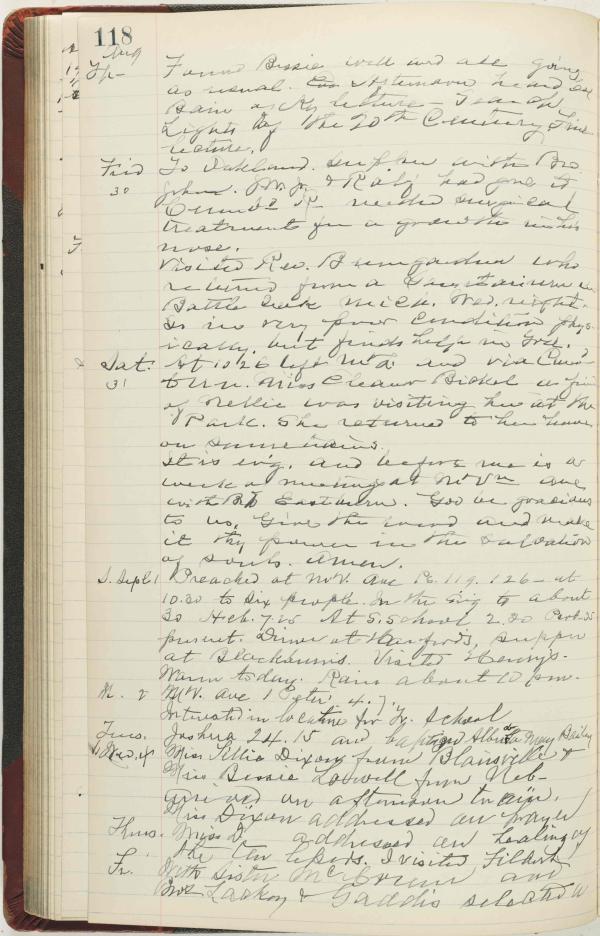 118
Aug
Found Bessie well and all going
as usual. Afternoon heard
Bain lecture – Search
Lights of the 20th Century. Fine
lecture.
Frid To Oakland. Supper with Bro.
30 John. & Ralf had gone to
R– needed surgical
treatment for a growth in his
nose.
Visited Rev. Bumgardner who
returned from a Sanitarium in
Battle Creek Mich. Wed. night.
Is in very poor condition phys-
ically, but finds help in God.
Sat. At 10:26 left and via
31 Miss Eleanor Bickel a
of Nellie was visiting her at the
Park. She returned to her home
on same train.
It is ev'g. and before me is a
week of meeting at Ave
with Eastburn. God be gracious
to us, Give the word and make
it thy power in the salvation
of souls. Amen.
S. Sept 1 Preached at Ave Ps. 119. 126 – at
10.30 to six people. In the Ev'g to about
30 Heb. 7.25 At S. School 2.30
present. Dinner at supper
at Blackburns. Visited Henry's.
Warm today. Rain about 10 p.m.
M. 2 Ave 1 Peter 4.7.
Interested in location for School
Tues. Joshua 24.15 and baptized May Bailey
Wed. 4 Miss Lillie Dixon from Blairsville &
Miss Bessie Lowell from Neb–
arrived on afternoon train.
Miss Dixon addressed on prayer
Thurs. Miss D addressed on healing of
the ten lepers. I visited Filbert
Fr. With Sister and
Bros Lackey & Gaddis selected a